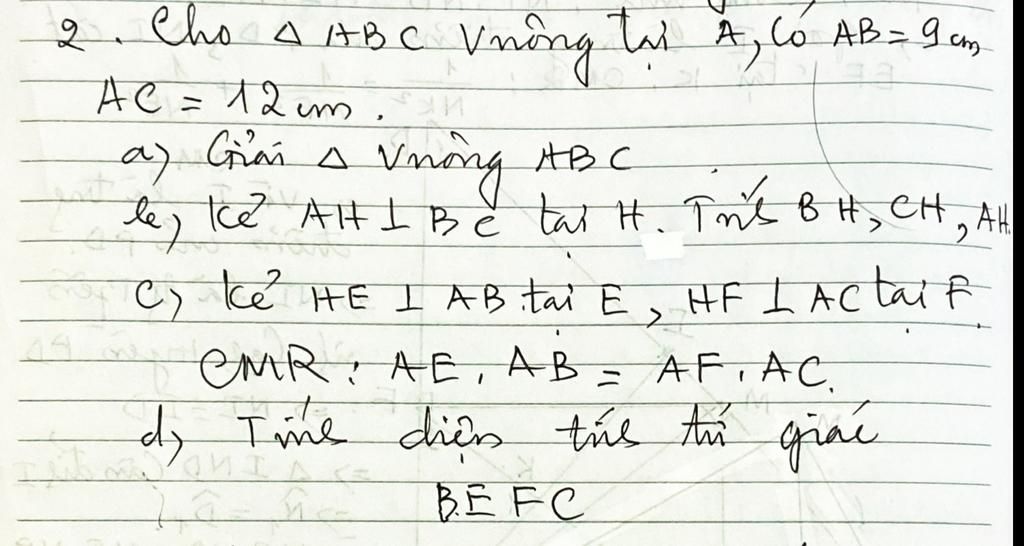 2. Cho Δ ABC vuông tại A, có AB = 9 cm
AC = 12 cm.
a) Giải Δ vuông ABC
b) kẻ AH ⊥ BC tại H. Tính BH, CH, AH.
c) kẻ HE ⊥ AB tại E, HF ⊥ AC tại F.
CMR: AE. AB = AF. AC.
d) Tính diện tích tứ giác
BEFC